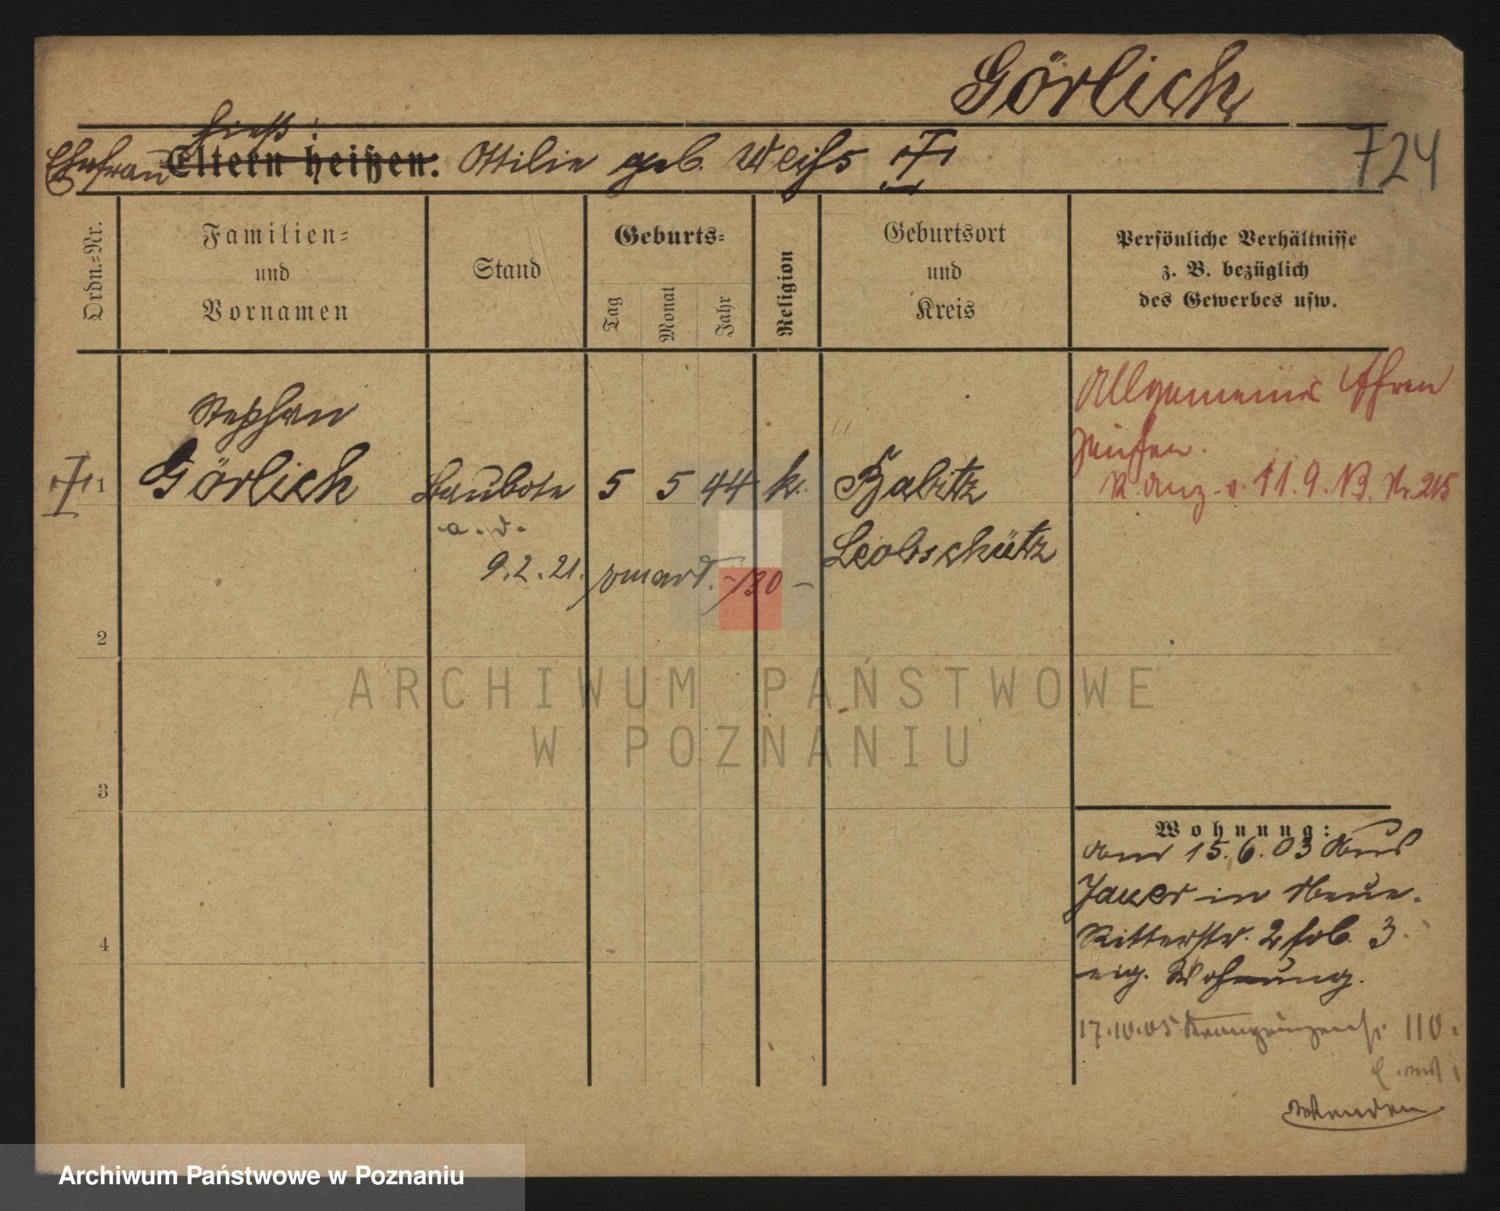 Görlich
724
hieß:
Ehefrau Eltern heißen: Ottilie geb. Weiß
Ordn.-Nr.
Familien- und Vornamen
Stand
Geburts-
Tag
Monat
Jahr
Religion
Geburtsort und Kreis
Persönliche Verhältnisse
z. B. bezüglich
des Gewerbes usw.
Stephan
1 Görlich
5 5 44 k.
Leobschütz
a. D.
9.2.21.
Allgemeines Ehren
zeichen.
11.9.13. Nr. 215
2
3
4
Wohnung:
15.6.03 aus
Jauer in Neue.
Ritterstr. 2 3.
eig. Wohnung.
17.10.05 110.
Wenden
ARCHIWUM PAŃSTWOWE
W POZNANIU
Archiwum Państwowe w Poznaniu